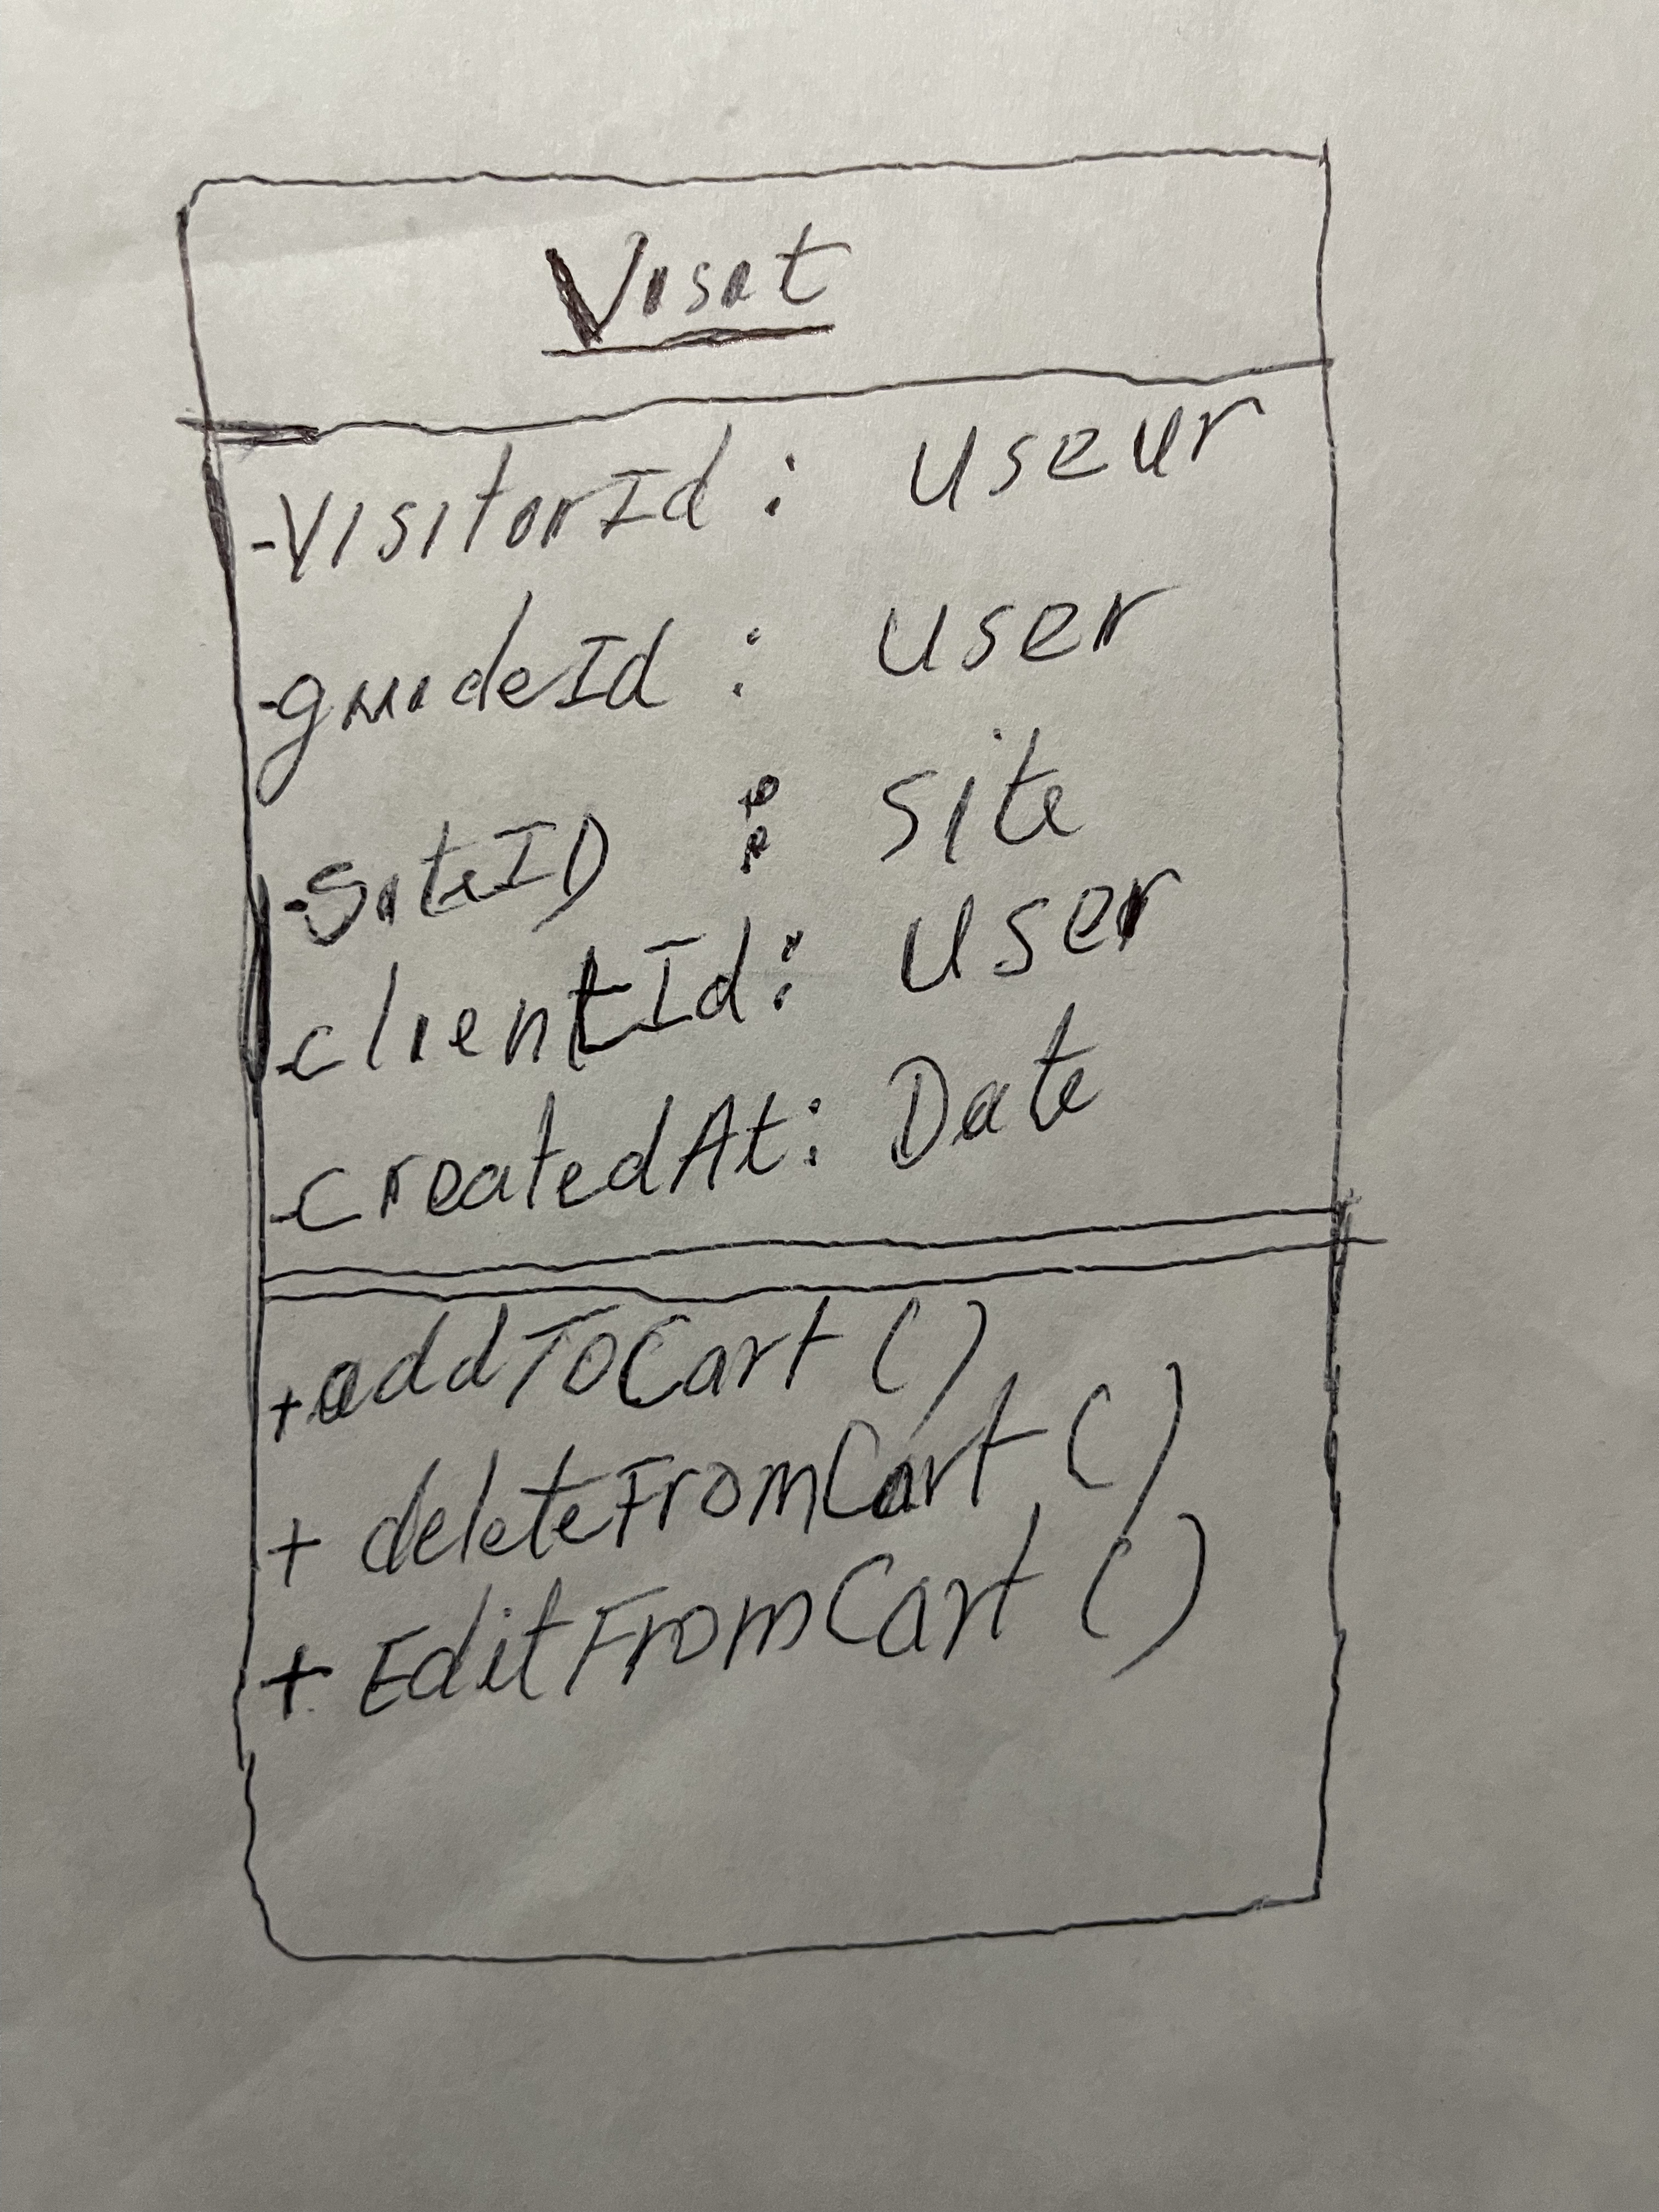 Visit
-VisitorId : useur
-guideId : user
-SiteID : site
-clientId : user
-createdAt : Date
+addToCart ()
+ deleteFromCart ()
+ EditFromCart ()